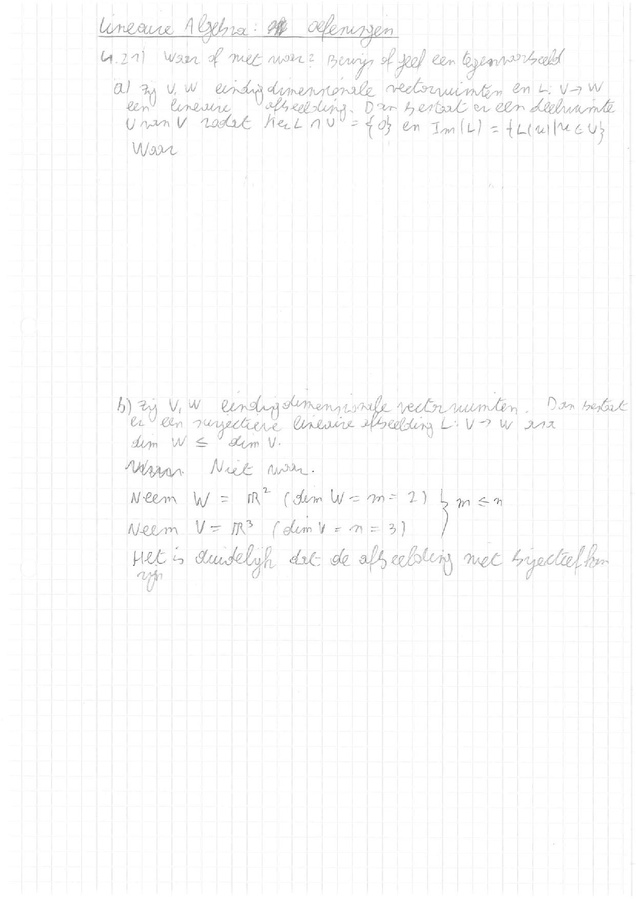 Lineaire Algebra: oefeningen
4.21) Waar of niet waar? Bewijs of geef een tegenvoorbeeld
a) Zij V, W eindigdimensionale vectorruimten en L: V → W
een lineaire afbeelding. Dan bestaat er een deelruimte
U van V zodat Ker L ∩ U = {0} en Im(L) = {L(u)|u ∈ U}
Waar
b) Zij V, W eindigdimensionale vectorruimten. Dan bestaat
er een surjectieve lineaire afbeelding L: V → W asa
dim W ≤ dim V.
Waar. Niet waar.
Neem W = ℝ² (dim W = m = 2) } m ≤ n
Neem V = ℝ³ (dim V = n = 3)
Het is duidelijk dat de afbeelding niet bijectief kan
zijn